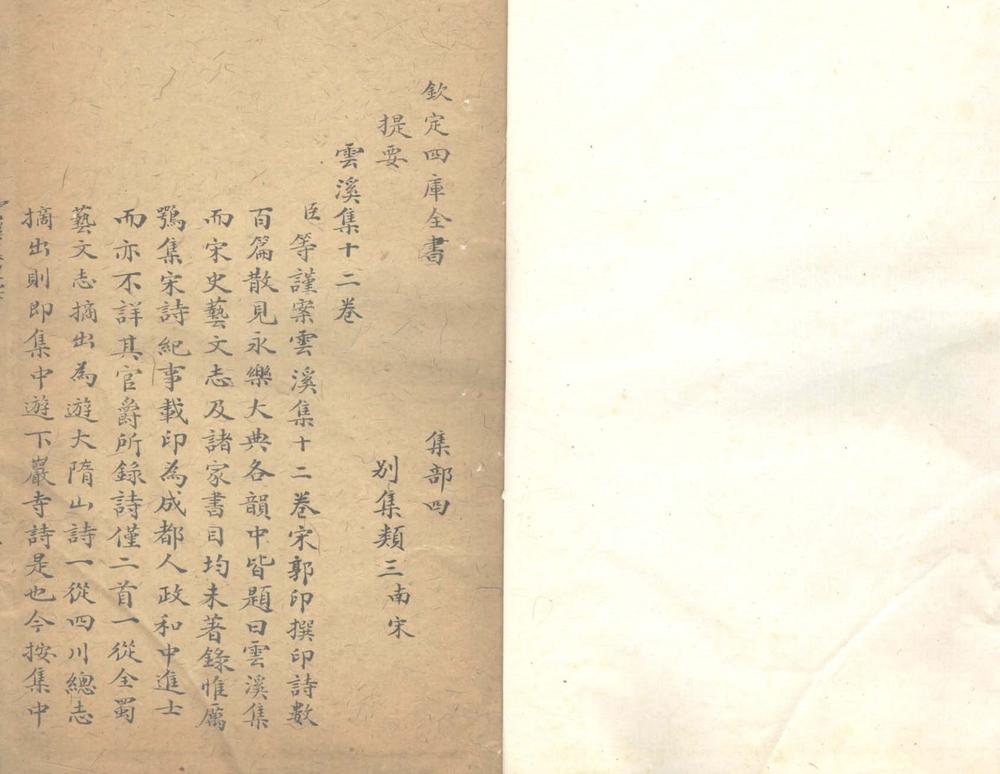 欽定四庫全書　集部四
提要　別集類三南宋
雲溪集十二卷
臣等謹案雲溪集十二卷宋郭印撰印詩數
百篇散見永樂大典各韻中皆題曰雲溪集
而宋史藝文志及諸家書目均未著錄惟厲
鶚集宋詩紀事載印為成都人政和中進士
而亦不詳其官爵所錄詩僅二首一從全蜀
藝文志摘出為遊大隋山詩一從四川總志
摘出則即集中遊下巖寺詩是也今按集中